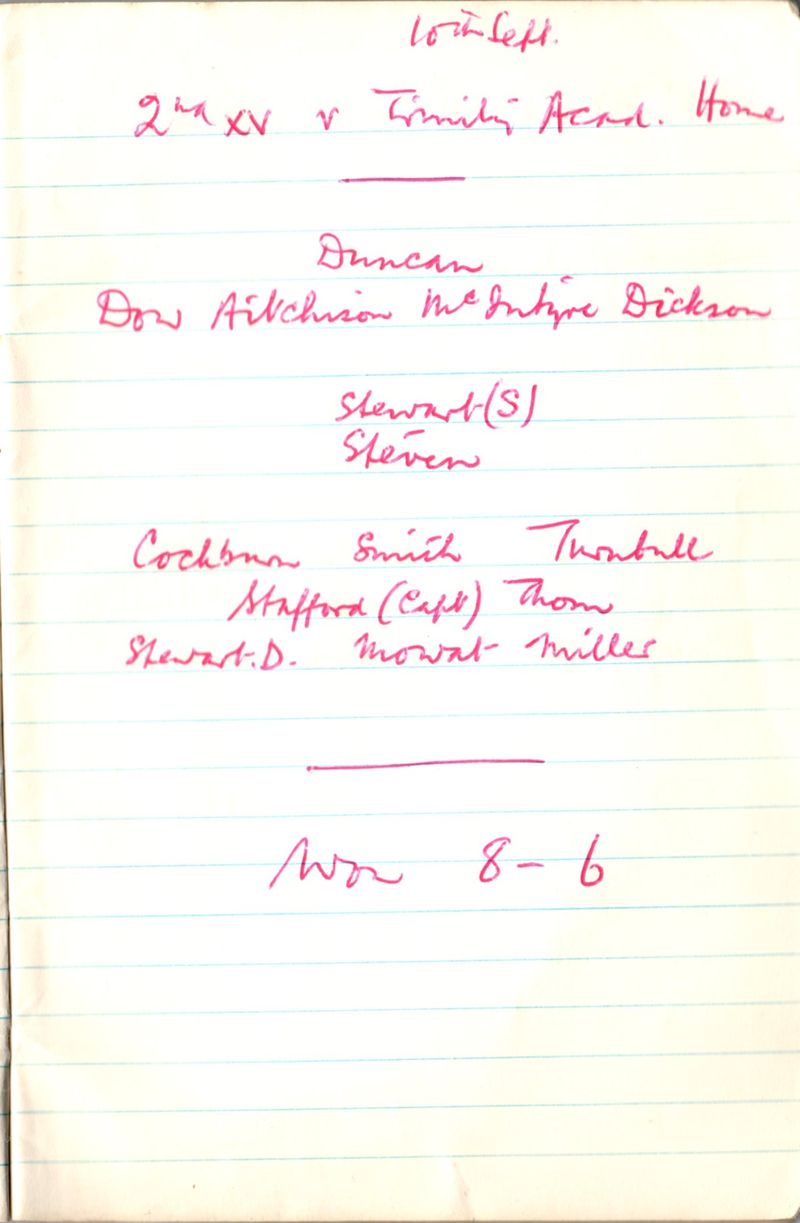 10th Sept.
2nd XV v Trinity Acad. Home
Duncan
Dow Aitchison McIntyre Dickson
Stewart (S)
Steven
Cockburn Smith Turnbull
Stafford (Capt) Thom
Stewart. D. Mowat Miller
Won 8 - 6